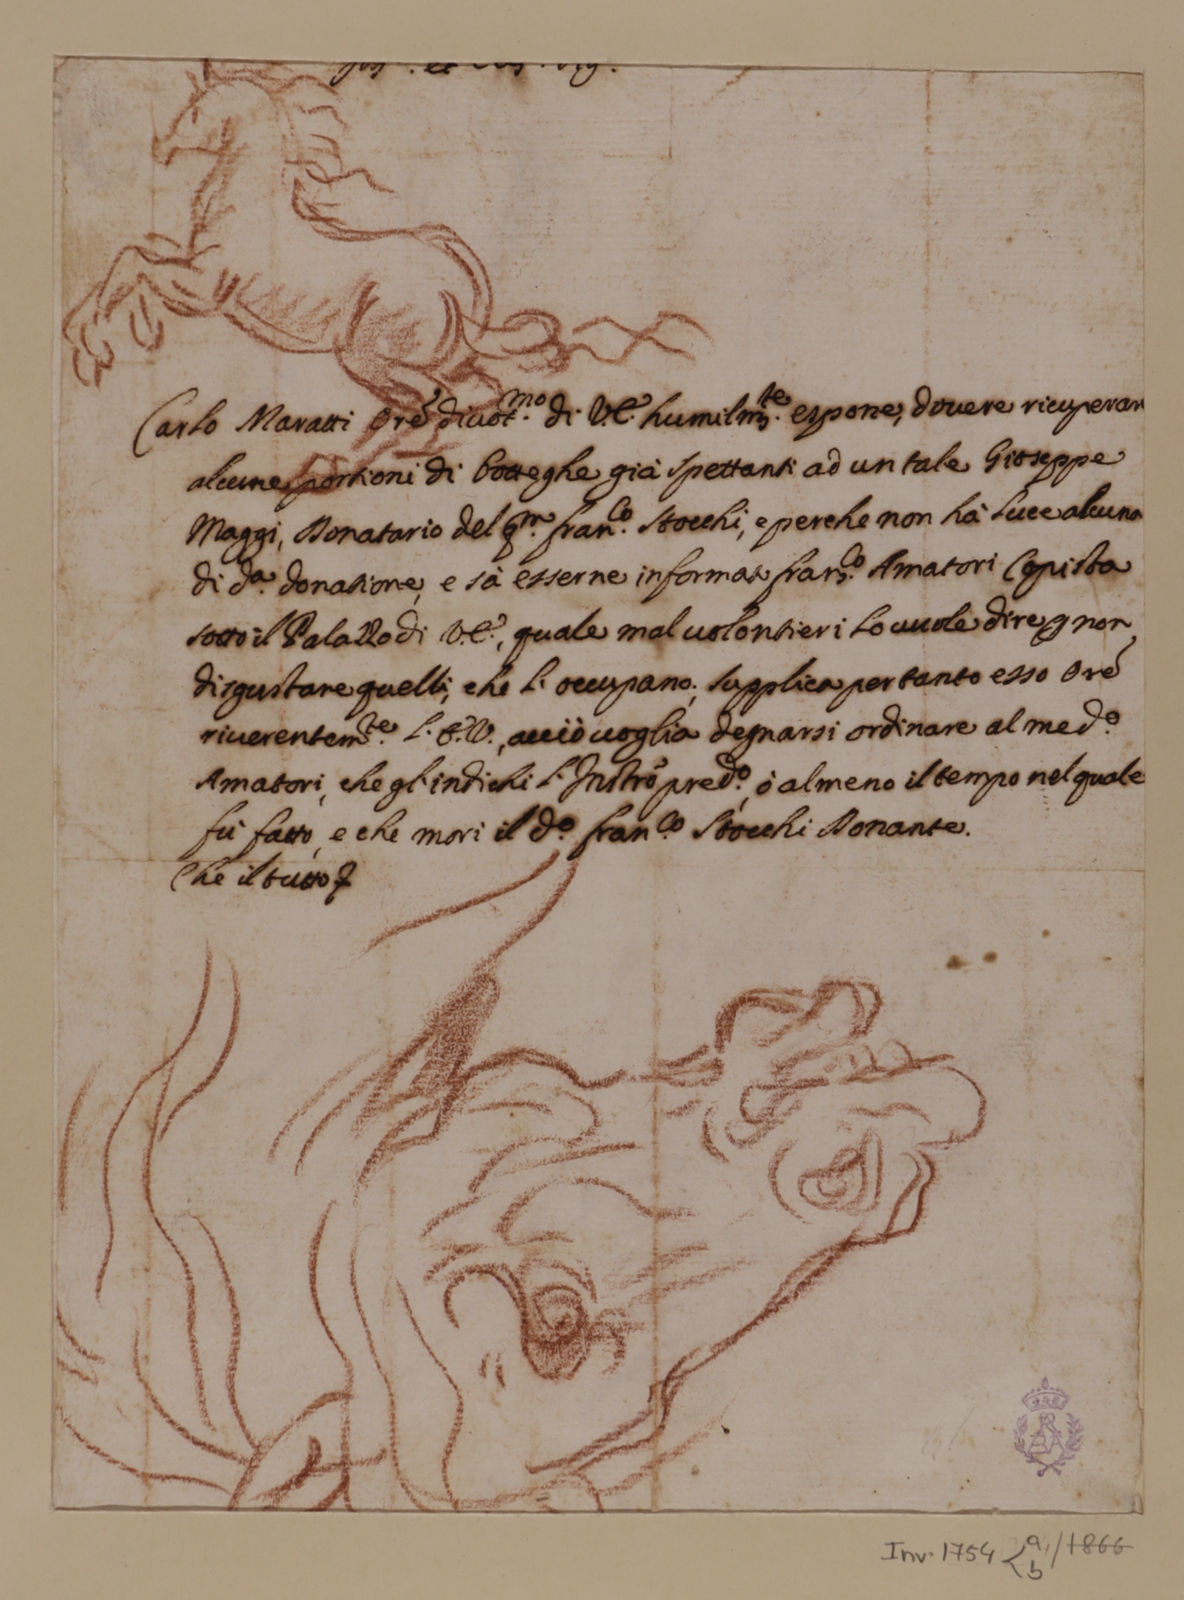 Carlo Maratti Ore divot.mo di V.E. humilm.te espone, dovere ricuperar
alcune portioni di botteghe già spettanti ad un tale Gioseppe
Maggi, Donatario del qm. Fran.co Stocchi, e perche non hà luce alcuna
di da. donatione, e sà esserne informat. Fran.co Amatori Copista
sotto il Palazzo di V.E., quale mal volontieri lo vuole dire p non
disgustare quelli, che l'occupano; supplica per tanto esso Ore
riverentem.te l'E.V., acciò voglia degnarsi ordinare al med.o
Amatori, che gl'indichi l'Instro pred.o, ò almeno il tempo nel quale
fù fatto, e che morì il d.o Fran.co Stocchi Donante.
Che il tutto
RABA
Inv. 1754 a/1866
b